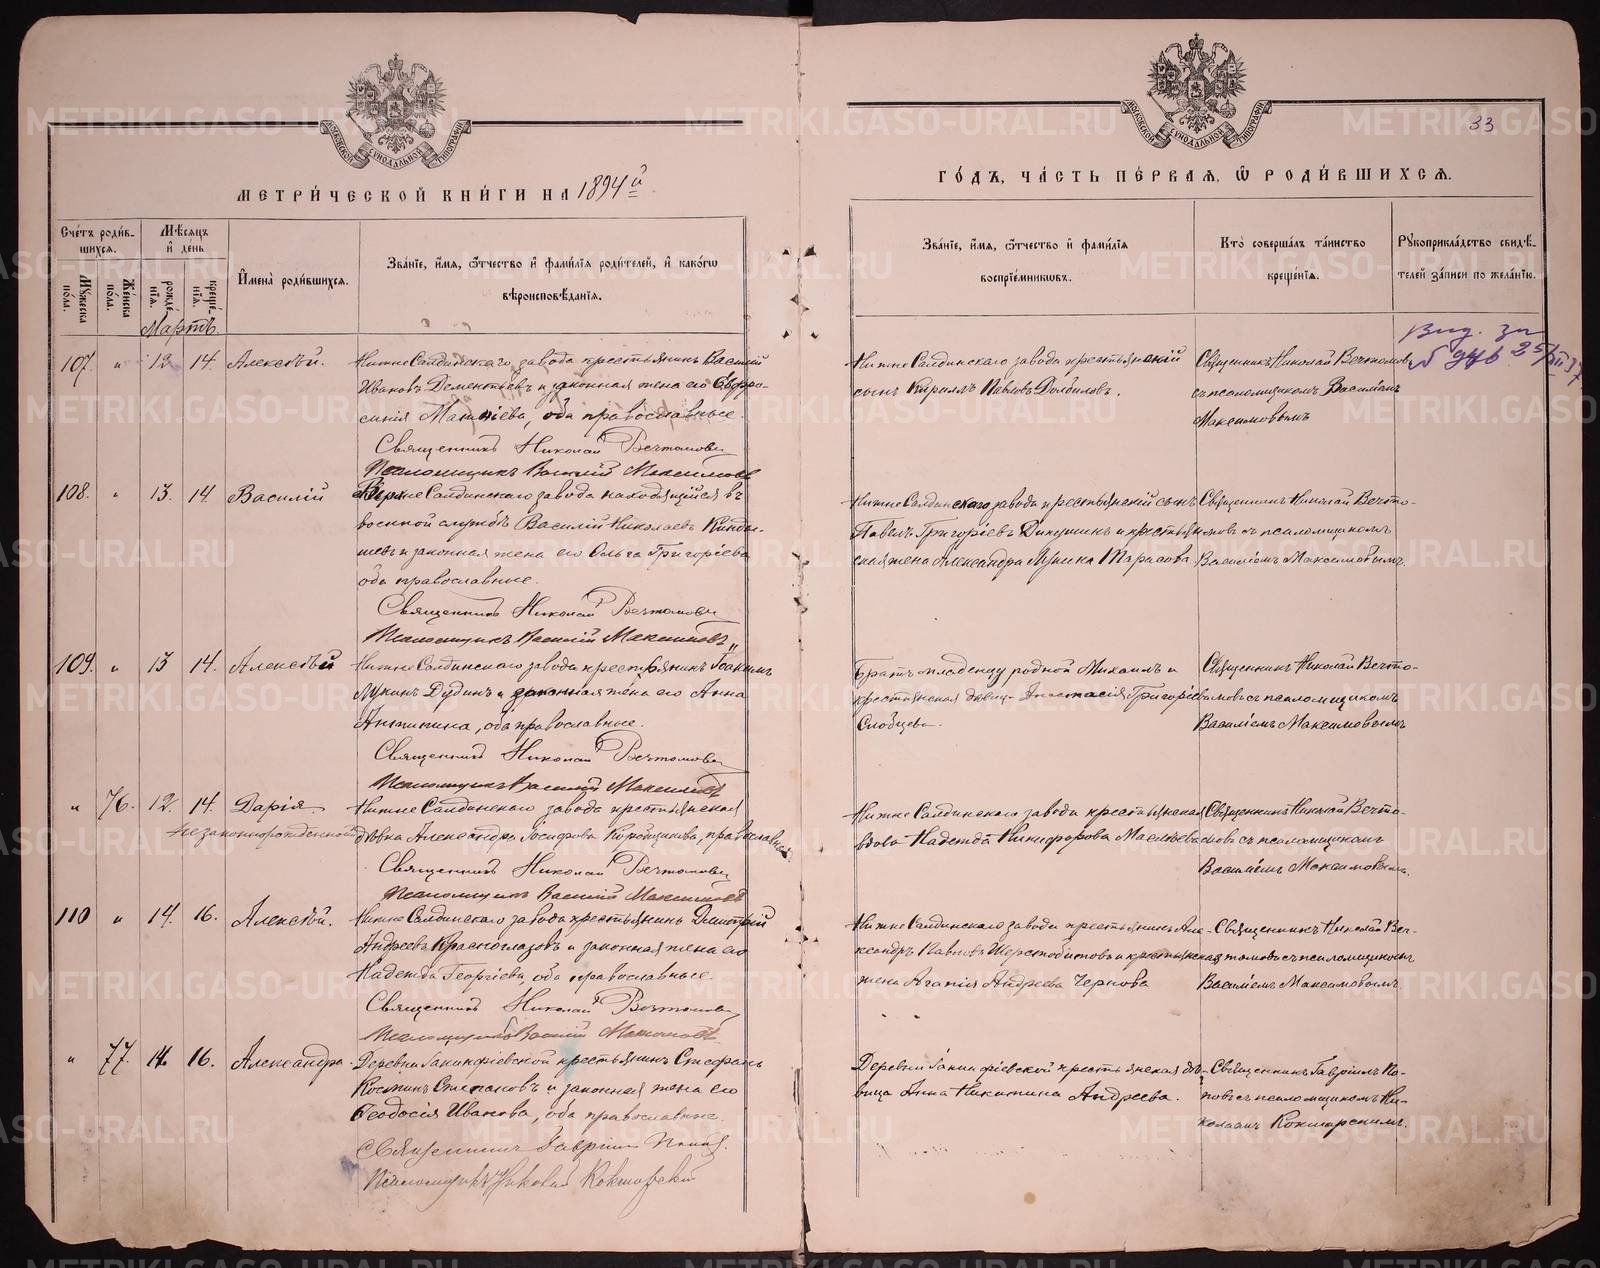 МЕТРИ́ЧЕСКОЙ КНИ́ГИ НА 1894й
Сче́тъ роди́в-
шихся.
Мѣ́сяцъ
и҆ де́нь
Му́жеска
по́ла.
Же́нска
по́ла.
рожде́-
нїѧ.
креще́-
нїѧ.
И҆мена̀ роди́вшихсѧ.
Зва́нїе, и҆́мѧ, ѻ҆́тчество и҆ фами́лїѧ роди́телей, и҆ како́гѡ
вѣроисповѣ́данїѧ.
Мартъ.
107. " 12 14. Алексѣй.
Нижне Салдинскаго завода крестьянинъ Василій
Ивановъ Дементьевъ и законная жена его Евфро-
синія Матвіева, оба православные.
Священникъ Николай Вечтомовъ
Псаломщикъ Василій Максимовъ
108. " 13. 14. Василій
Верхне Салдинскаго завода находящійся въ
военной службѣ Василій Николаевъ
и законная жена его Ольга Григоріева
оба православные.
Священникъ Николай Вечтомовъ
Псаломщикъ Василій Максимовъ
109. " 13 14. Алексѣй
Нижне Салдинскаго завода крестьянинъ Іоакимъ
Лукинъ Дудинъ и законная жена его Анна
Антипина, оба православные.
Священникъ Николай Вечтомовъ
Псаломщикъ Василій Максимовъ
" 76. 12. 14. Дарія
незаконнорожденной
Нижне Салдинскаго завода крестьянская
дѣвка Александра Іосифова православная
Священникъ Николай Вечтомовъ
Псаломщикъ Василій Максимовъ
110 " 14. 16. Алексѣй.
Нижне Салдинскаго завода крестьянинъ Димитрій
Андреевъ Красноглазовъ и законная жена его
Надежда Георгіева, оба православные.
Священникъ Николай Вечтомовъ
Псаломщикъ Василій Максимовъ
" 77. 14. 16. Александра.
Деревни Іакинфіевской крестьянинъ Стефанъ
Косминъ Степановъ и законная жена его
Ѳеодосія Иванова, оба православные.
Священникъ Гавріилъ Поповъ.
Псаломщикъ Николай Кокшарскій
33
ГО́ДЪ, ЧА́СТЬ ПЕ́РВАЯ, Ѡ҆ РОДИ́ВШИХСЯ.
Зва́нїе, и҆́мѧ, ѻ҆́тчество и҆ фами́лїѧ
воспрїе́мникѡвъ.
Кто̀ соверша́лъ та́инство
креще́нїѧ.
Рꙋкоприкла́дство свидѣ́-
телей за́писи по жела́нїю.
Нижне Салдинскаго завода крестьянскій
сынъ Кириллъ Павловъ Долбиловъ.
Священникъ Николай Вечтомовъ
съ псаломщикомъ Василіемъ
Максимовымъ
Выд. за
Нижне Салдинскаго завода крестьянскій сынъ
Павелъ Григоріевъ Дикушинъ и крестьян-
ская жена Александра Лукина Тарасова.
Священникъ Николай Вечто-
мовъ съ псаломщикомъ
Василіемъ Максимовымъ.
Братъ младенцу родной Михаилъ и
крестьянская дѣвица Анастасія Григоріева
Слобцева.
Священникъ Николай Вечто-
мовъ съ псаломщикомъ
Василіемъ Максимовымъ
Нижне Салдинскаго завода крестьянская
вдова Надежда Никифорова Масляева
Священникъ Николай Вечто-
мовъ съ псаломщикомъ
Василіемъ Максимовымъ.
Нижне Салдинскаго завода крестьянинъ Але-
ксандръ Павловъ Шерстобитовъ и крестьянская
жена Агапія Андреева Чернова
Священникъ Николай Веч-
томовъ съ псаломщикомъ
Василіемъ Максимовымъ.
Деревни Іакинфіевской крестьянская дѣ-
вица Анна Никитина Андреева.
Священникъ Гавріилъ По-
повъ съ псаломщикомъ Ни-
колаемъ Кокшарскимъ.
МОСКОВСКОЙ СѴНОДАЛЬНОЙ ТИПОГРАФІИ
МОСКОВСКОЙ СѴНОДАЛЬНОЙ ТИПОГРАФІИ
METRIKI.GASO-URAL.RU